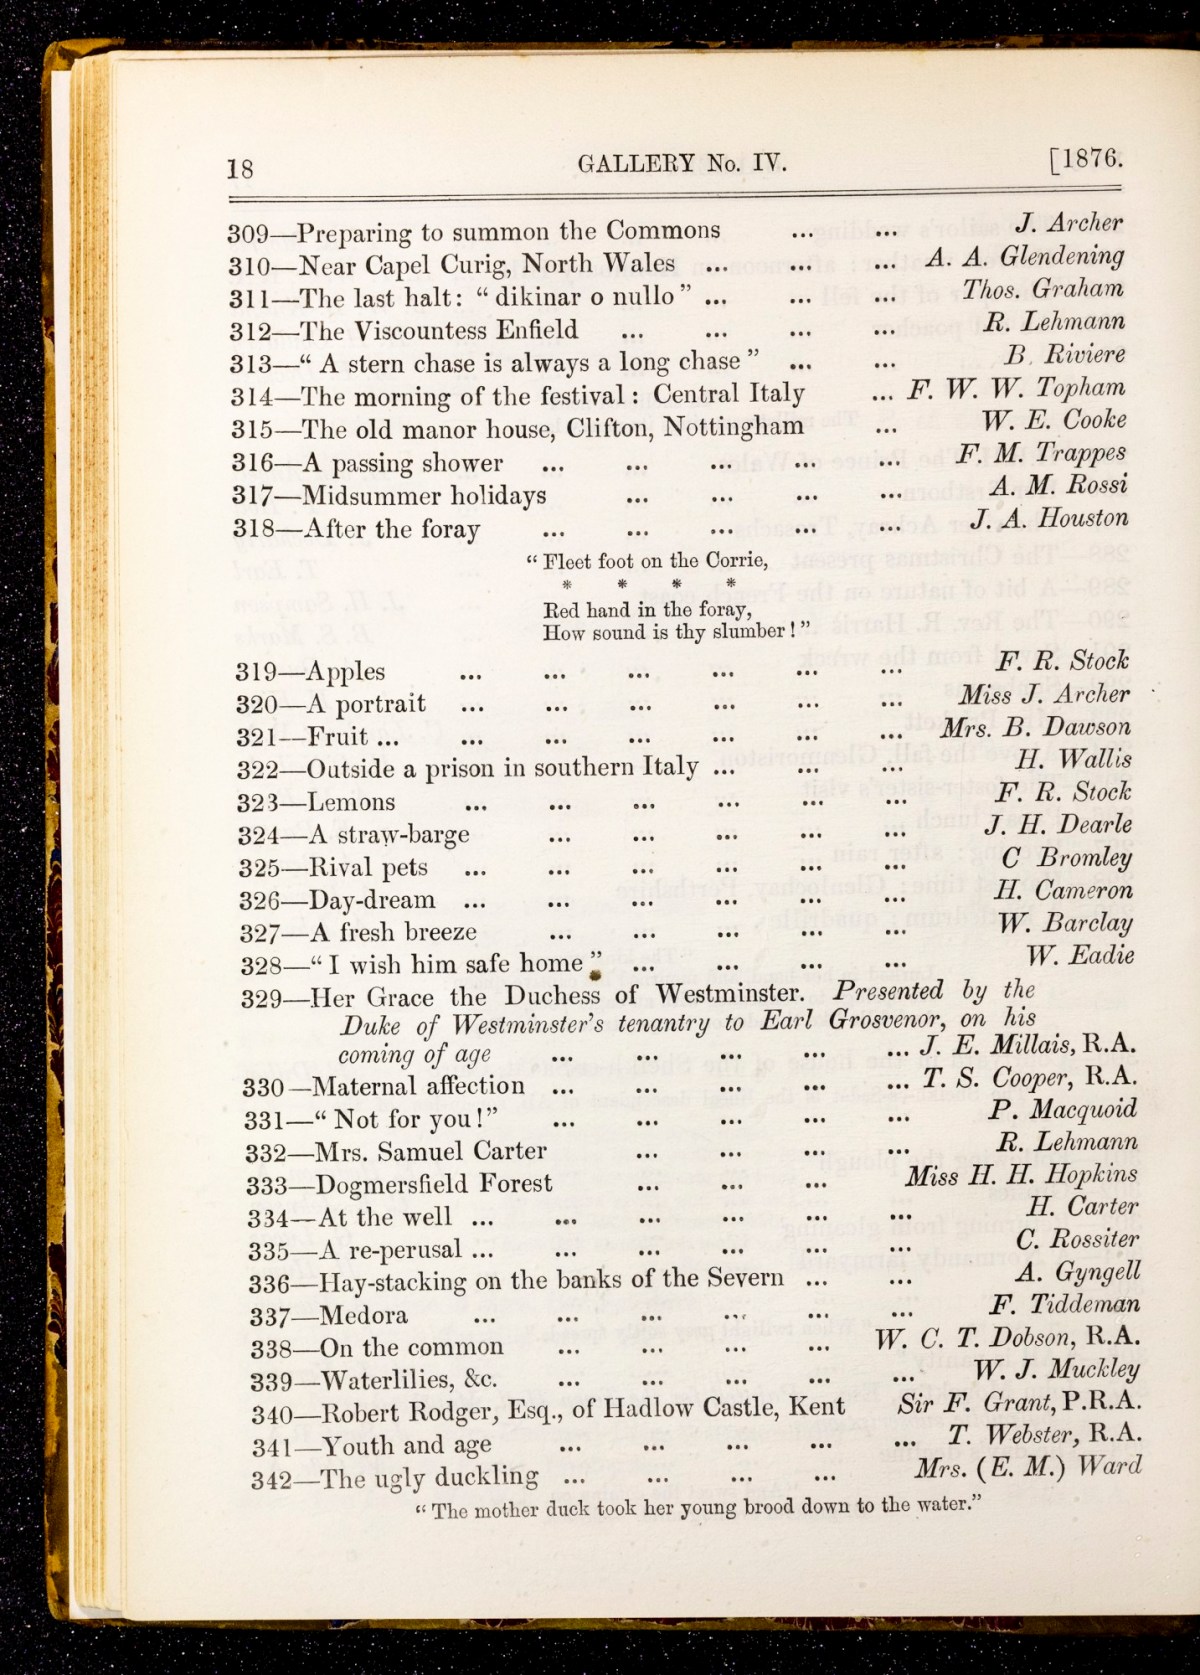 18 GALLERY No. IV. [1876.
309—Preparing to summon the Commons ... ... J. Archer
310—Near Capel Curig, North Wales ... ... ... A. A. Glendening
311—The last halt: “ dikinar o nullo ” ... ... ... Thos. Graham
312—The Viscountess Enfield ... ... ... ... R. Lehmann
313—“ A stern chase is always a long chase ” ... ... B. Riviere
314—The morning of the festival : Central Italy ... F. W. W. Topham
315—The old manor house, Clifton, Nottingham ... W. E. Cooke
316—A passing shower ... ... ... ... ... F. M. Trappes
317—Midsummer holidays ... ... ... ... A. M. Rossi
318—After the foray ... ... ... ... ... J. A. Houston
“ Fleet foot on the Corrie,
* * * *
Red hand in the foray,
How sound is thy slumber ! ”
319—Apples ... ... ... ... ... ... F. R. Stock
320—A portrait ... ... ... ... ... ... Miss J. Archer
321—Fruit ... ... ... ... ... ... ... Mrs. B. Dawson
322—Outside a prison in southern Italy ... ... ... H. Wallis
323—Lemons ... ... ... ... ... ... F. R. Stock
324—A straw-barge ... ... ... ... ... J. H. Dearle
325—Rival pets ... ... ... ... ... ... C Bromley
326—Day-dream ... ... ... ... ... ... H. Cameron
327—A fresh breeze ... ... ... ... ... W. Barclay
328—“ I wish him safe home ” ... ... ... ... W. Eadie
329—Her Grace the Duchess of Westminster. Presented by the
Duke of Westminster’s tenantry to Earl Grosvenor, on his
coming of age ... ... ... ... ... J. E. Millais, R.A.
330—Maternal affection ... ... ... ... ... T. S. Cooper, R.A.
331—“ Not for you ! ” ... ... ... ... ... P. Macquoid
332—Mrs. Samuel Carter ... ... ... ... R. Lehmann
333—Dogmersfield Forest ... ... ... Miss H. H. Hopkins
334—At the well ... ... ... ... ... ... H. Carter
335—A re-perusal ... ... ... ... ... ... C. Rossiter
336—Hay-stacking on the banks of the Severn ... ... A. Gyngell
337—Medora ... ... ... ... ... ... F. Tiddeman
338—On the common ... ... ... ... W. C. T. Dobson, R.A.
339—Waterlilies, &c. ... ... ... ... ... W. J. Muckley
340—Robert Rodger, Esq., of Hadlow Castle, Kent Sir F. Grant, P.R.A.
341—Youth and age ... ... ... ... ... T. Webster, R.A.
342—The ugly duckling ... ... ... ... Mrs. (E. M.) Ward
“ The mother duck took her young brood down to the water.”